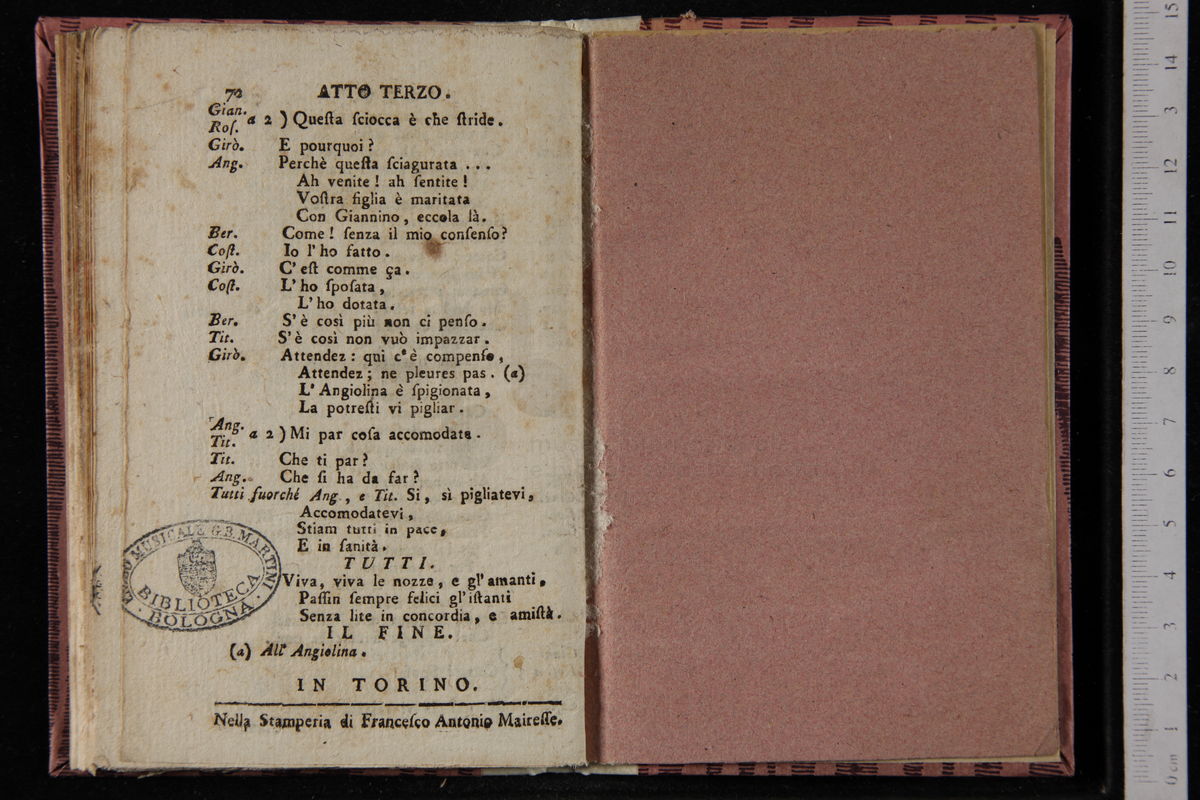 72 ATTO TERZO.
Gian.
Roſ. a 2 ) Queſta ſciocca è che ſtride.
Girò. E pourquoi ?
Ang. Perchè queſta ſciagurata ...
Ah venite ! ah ſentite !
Voſtra figlia è maritata
Con Giannino, eccola là.
Ber. Come ! ſenza il mio conſenſo ?
Coſt. Io l' ho fatto.
Girò. C' eſt comme ça.
Coſt. L' ho ſpoſata,
L' ho dotata.
Ber. S' è così più non ci penſo.
Tit. S' è così non vuò impazzar.
Girò. Attendez : qui c' è compenſo,
Attendez ; ne pleures pas. (a)
L' Angiolina è ſpigionata,
La potreſti vi pigliar.
Ang.
Tit. a 2 ) Mi par coſa accomodata.
Tit. Che ti par ?
Ang. Che ſi ha da far ?
Tutti fuorchè Ang., e Tit. Si, sì pigliatevi,
Accomodatevi,
Stiam tutti in pace,
E in ſanità.
TUTTI.
Viva, viva le nozze, e gl' amanti,
Paſſin ſempre felici gl' iſtanti
Senza lite in concordia, e amiſtà.
IL FINE.
(a) All' Angiolina.
IN TORINO.
Nella Stamperia di Franceſco Antonio Maireſſe.
MUSICALE G.B. MARTINI
BIBLIOTECA
· BOLOGNA ·
15
14
13
12
11
10
9
8
7
6
5
4
3
2
1
0 cm